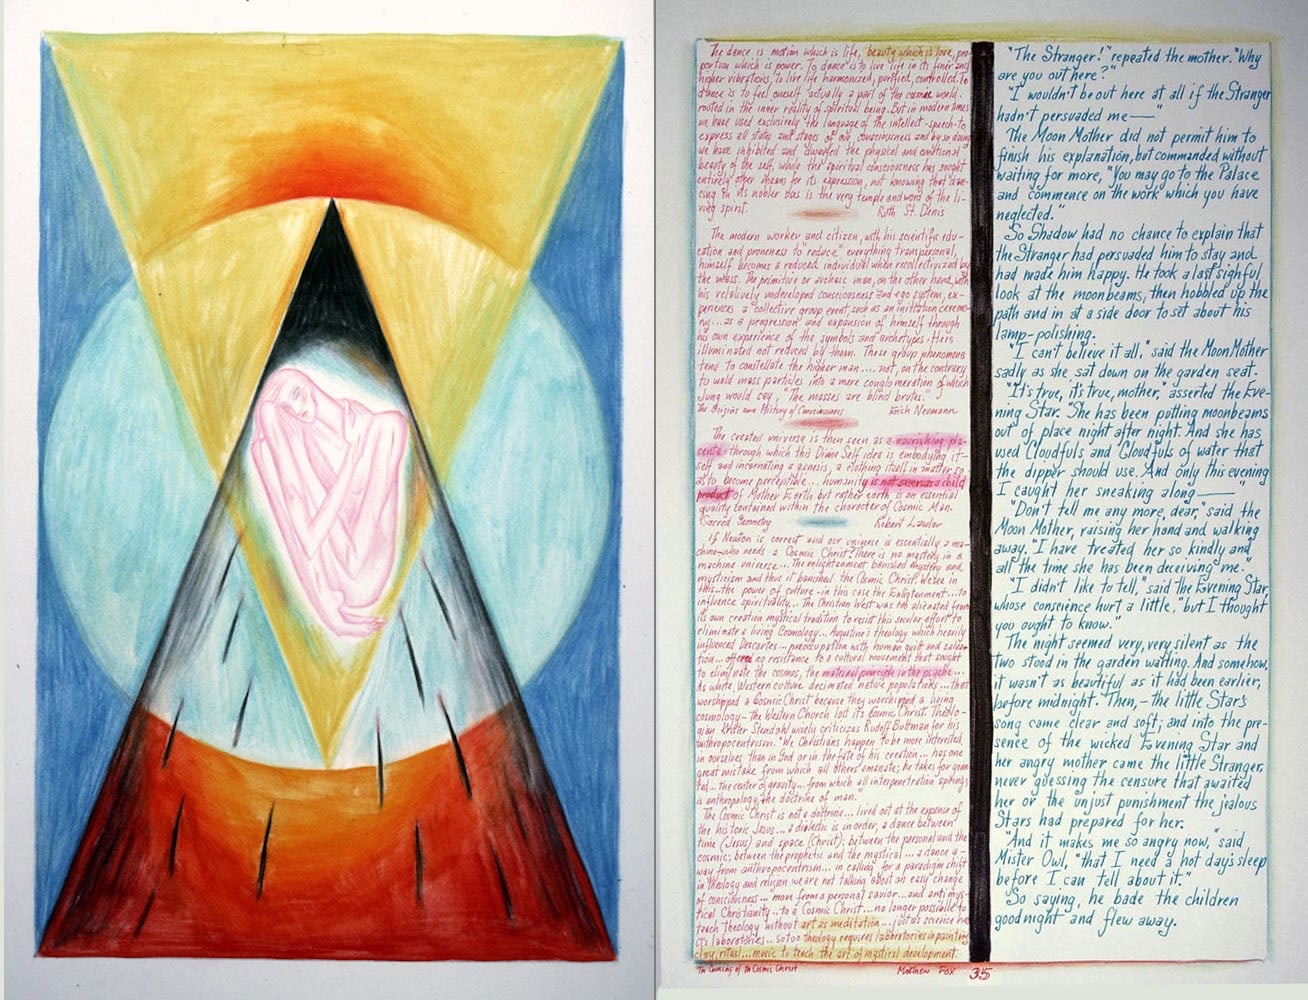 The dance is motion which is life, beauty which is love, pro-
portion which is power. To dance is to live life in its finer and
higher vibrations, to live life harmonized, purified, controlled. To
dance is to feel oneself actually a part of the cosmic world.
rooted in the inner reality of spiritual being. But in modern times
we have used exclusively the language of the intellect-speech-to
express all states and stages of our consciousness and by so doing
we have inhibited and dwarfed the physical and emotional
beauty of the self, while the spiritual consciousness has sought
entirely other means for its expression, not knowing that dan-
cing in its nobler uses is the very temple and word of the li-
ving spirit. Ruth St. Denis
The modern worker and citizen, with his scientific edu-
cation and proneness to "reduce" everything transpersonal,
himself becomes a reduced individual when recollectivized by
the mass. The primitive or archaic man, on the other hand, with
his relatively undeveloped consciousness and ego system, ex-
periences a collective group event, such as an initiation ceremo-
ny... as a progression and expansion of himself through
his own experience of the symbols and archetypes. He is
illuminated not reduced by them. These group phenomena
tend to constellate the higher man.... not, on the contrary
to weld mass particles into a mere conglomeration of which
Jung would say, "The masses are blind brutes."
The Origins and History of Consciousness Erich Neumann
The created universe is then seen as a nourishing pla-
centa through which this Divine Self idea is embodying it-
self and incarnating a genesis, a clothing itself in matter so
as to become perceptible... humanity is not seen as a child
product of Mother Earth but rather earth is an essential
quality contained within the character of Cosmic Man.
Sacred Geometry Robert Lawlor
If Newton is correct and our universe is essentially a ma-
chine-who needs a Cosmic Christ? There is no mystery in a
machine universe... The enlightenment banished mystery and
mysticism and thus it banished the Cosmic Christ. We see in
this-the power of culture-in this case the Enlightenment...to
influence spirituality... The Christian West was too alienated from
its own creation mystical tradition to resist this secular effort to
eliminate a living Cosmology... Augustine's theology which heavily
influenced Descartes... preoccupation with human guilt and salva-
tion... offered no resistance to a cultural movement that sought
to eliminate the cosmos, the maternal principle in the psyche...
As white Western culture decimated native populations... that
worshipped a Cosmic Christ because they worshiped a living
cosmology-the Western Church lost its Cosmic Christ. Theolo-
gian Krister Stendahl wisely criticizes Rudolf Bultman for his
anthropocentrism. "We Christians happen to be more interested
in ourselves than in God or in the fate of his creation... has one
great mistake from which all others emanate; he takes for gran-
ted... the center of gravity... from which all interpretation springs
is anthropology, the doctrine of man."
The Cosmic Christ is not a doctrine... lived out at the expense of
the historic Jesus... a dialectic is in order, a dance between
time (Jesus) and space (Christ); between the personal and the
cosmic; between the prophetic and the mystical... a dance a-
way from anthropocentrism... in calling for a paradigm shift
in theology and religion we are not talking about an easy change
of consciousness... move from a personal savior...and anti mys-
tical Christianity...to a Cosmic Christ...no longer possible to
teach theology without art as meditation... just as science has
its laboratories... so too theology requires laboratories in painting
clay, ritual... music to teach the art of mystical development.
The Coming of the Cosmic Christ Matthew Fox 35
"The Stranger!" repeated the mother. "Why
are you out here?"
"I wouldn't be out here at all if the Stranger
hadn't persuaded me—"
The Moon Mother did not permit him to
finish his explanation, but commanded without
waiting for more, "You may go to the Palace
and commence on the work which you have
neglected."
So Shadow had no chance to explain that
the Stranger had persuaded him to stay and
had made him happy. He took a last sighful
look at the moonbeams, then hobbled up the
path and in at a side door to set about his
lamp-polishing.
"I can't believe it all," said the Moon Mother
sadly as she sat down on the garden seat.
"It's true, it's true, mother," asserted the Eve-
ning Star. She has been putting moonbeams
out of place night after night. And she has
used Cloudfuls and Cloudfuls of water that
the dipper should use. And only this evening
I caught her sneaking along——"
"Don't tell me any more, dear," said the
Moon Mother, raising her hand and walking
away. "I have treated her so kindly and
all the time she has been deceiving me."
"I didn't like to tell," said the Evening Star,
whose conscience hurt a little, "but I thought
you ought to know."
The night seemed very, very silent as the
two stood in the garden waiting. And somehow,
it wasn't as beautiful as it had been earlier,
before midnight. Then,- the little Star's
song came clear and soft; and into the pre-
sence of the wicked Evening Star and
her angry mother came the little Stranger,
never guessing the censure that awaited
her or the unjust punishment the jealous
Stars had prepared for her.
"And it makes me so angry now," said
Mister Owl, "that I need a hot day's sleep
before I can tell about it."
So saying, he bade the children
goodnight and flew away.